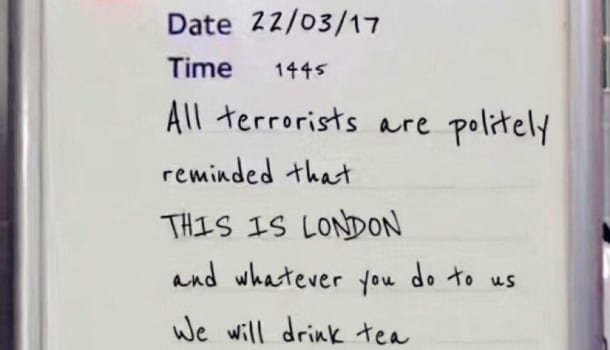 Date 22/03/17
Time 1445
All terrorists are politely
reminded that
THIS IS LONDON
and whatever you do to us
We will drink tea